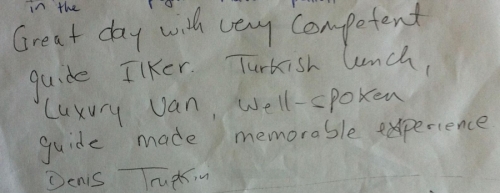 in the
Great day with very competent
guide Ilker. Turkish lunch,
Luxury van, well-spoken
guide made memorable experience.
Denis